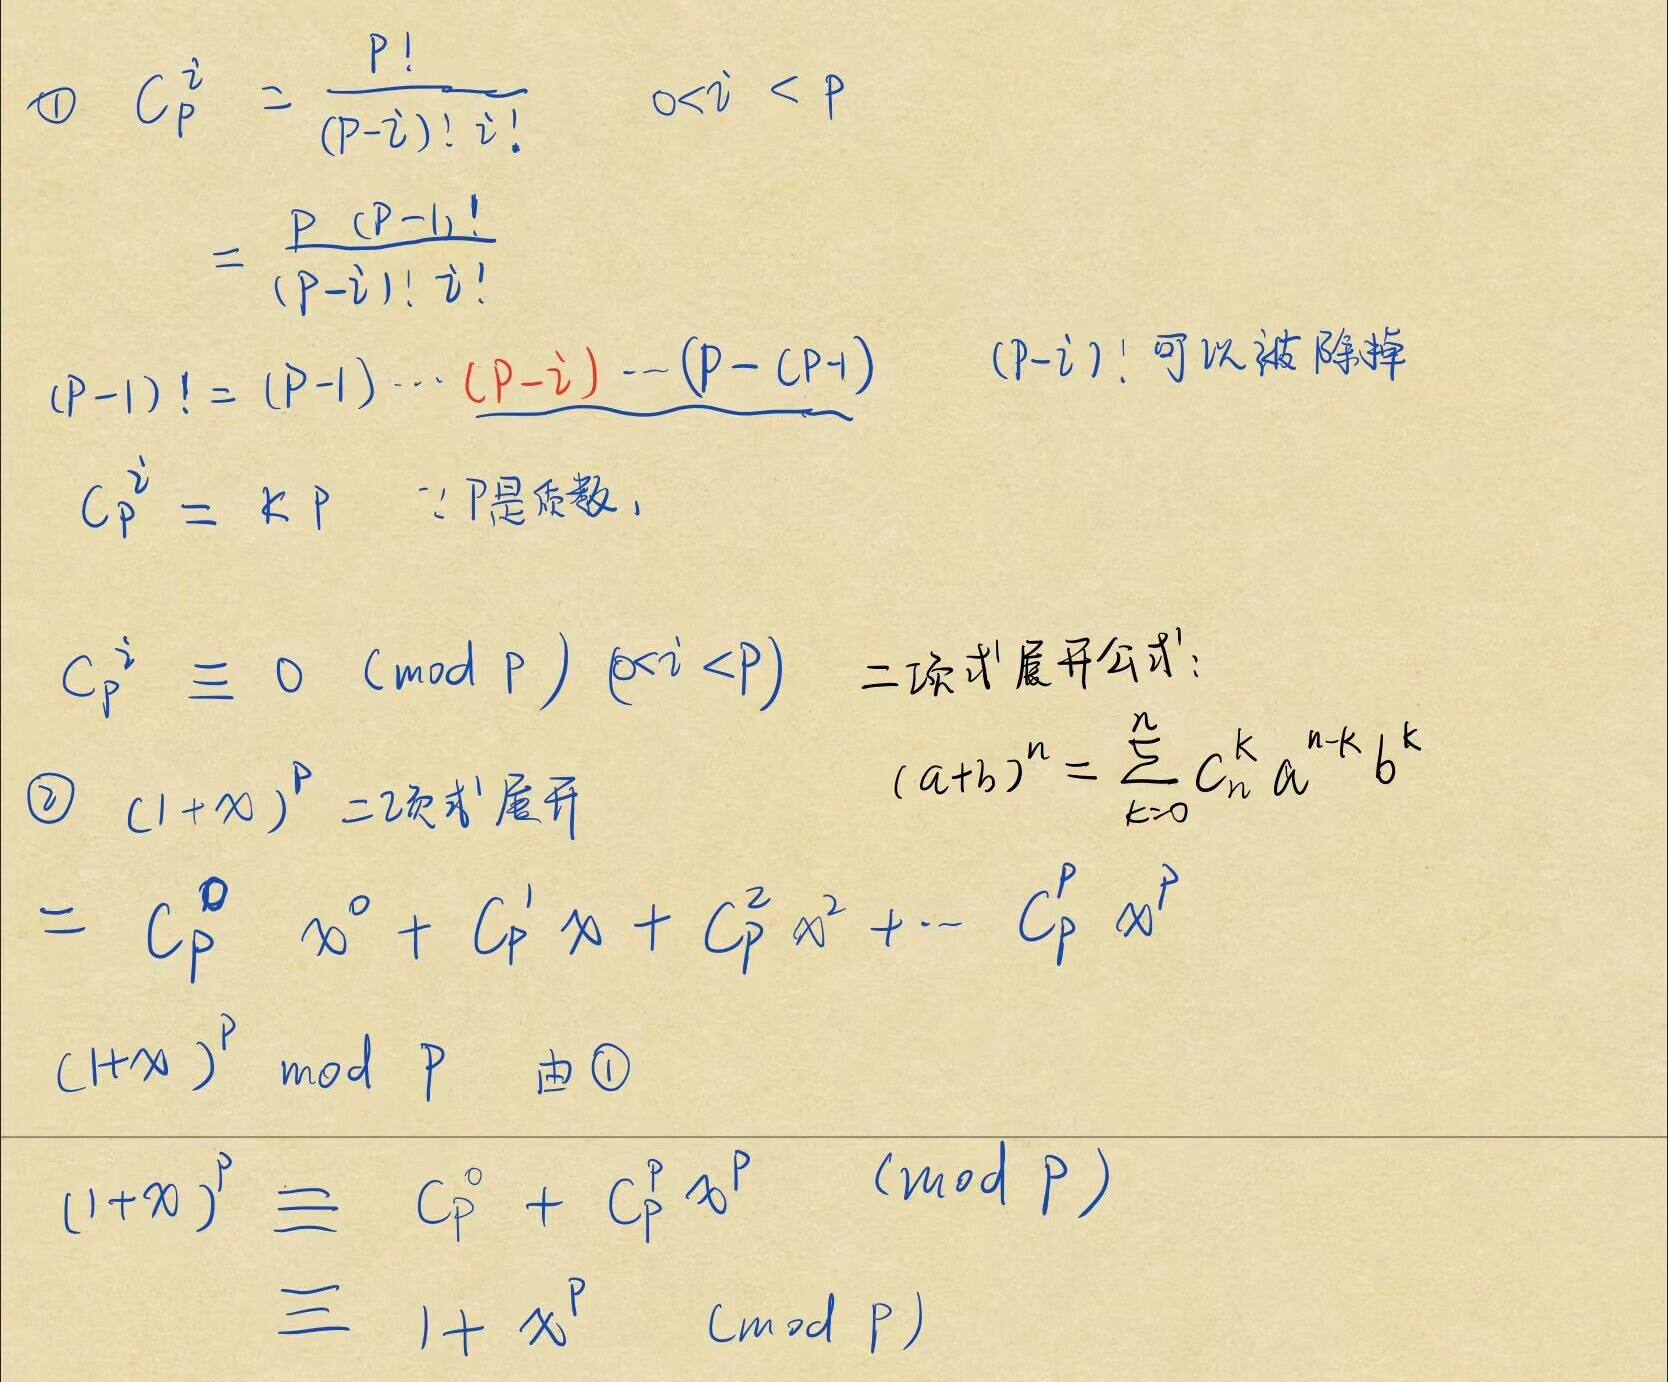 ① C_p^i = p! / ((p-i)! i!)   0<i<p
= p (p-1)! / ((p-i)! i!)
(p-1)! = (p-1) ⋯ (p-i) ⋯ (p-(p-1)   (p-i)! 可以被除掉
C_p^i = kp   ∵ p是质数,
C_p^i ≡ 0 (mod p) (0<i<p)   二项式展开公式:
(a+b)^n = ∑_{k=0}^{n} C_n^k a^{n-k} b^k
② (1+x)^p 二项式展开
= C_p^0 x^0 + C_p^1 x + C_p^2 x^2 + ⋯ C_p^p x^p
(1+x)^p mod p   由①
(1+x)^p ≡ C_p^0 + C_p^p x^p   (mod p)
≡ 1+ x^p   (mod p)